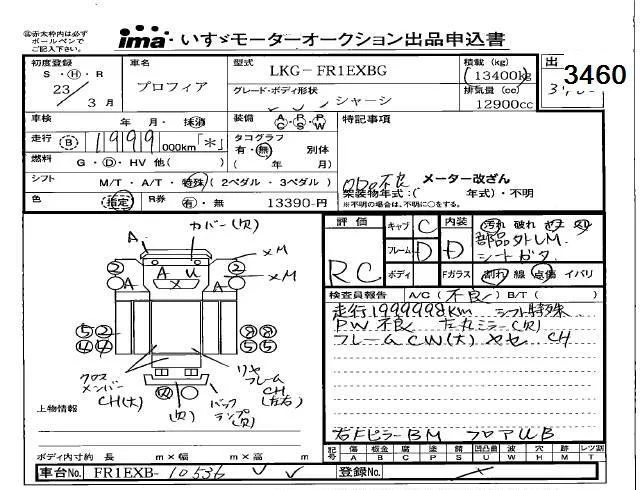 ㊟赤太枠内は必ず
ボールペンで
ご記入下さい。
ima いすゞモーターオークション出品申込書
初度登録 S・Ⓗ・R 23/3月
車名 プロフィア
型式 LKG-FR1EXBG
グレード・ボディ形状 シャーシ
積載 (kg) (13400kg
排気量 (cc) 12900cc
出
3460
車検 年 月・抹消
装備 AC PS PW
特記事項
走行 Ⓑ 1999 000km「*」
タコグラフ 有・無 別体
( 年 月)
燃料 G・Ⓓ・HV 他( )
シフト M/T・A/T・特殊(2ペダル・3ペダル)
メーター改ざん
架装物年式( 年式)・不明
※不明の場合は、不明に○をする。
色 指定 R券 有・無 13390-円
評価 RC
キャブ C
内装 D
フレーム D
ボディ
Fガラス 割れ 線 点傷 イバリ
汚れ 破れ
部品外しM.
シートガタ
検査員報告 A/C(不良)B/T( )
走行1999998km シフト特殊
PW不良 左丸ミラー(欠)
フレームCW(大) ヤセ CH
右Fピラー BM フロアUB
カバー(欠)
A
×M
② ②
A U
X
×M
A A
⑤② ⑧⑧
④④ ⑤⑤
クロスメンバー CH(大)
リヤフレーム CH(左右)
(欠)
バックランプ(欠)
上物情報
ボディ内寸約 長 m×幅 m×高 m
記号 傷A 板金B 腐C 塗P 錆S 凸凹曲U 波W 穴H 跡M レツ割T
車台No. FR1EXB-10536
登録No.